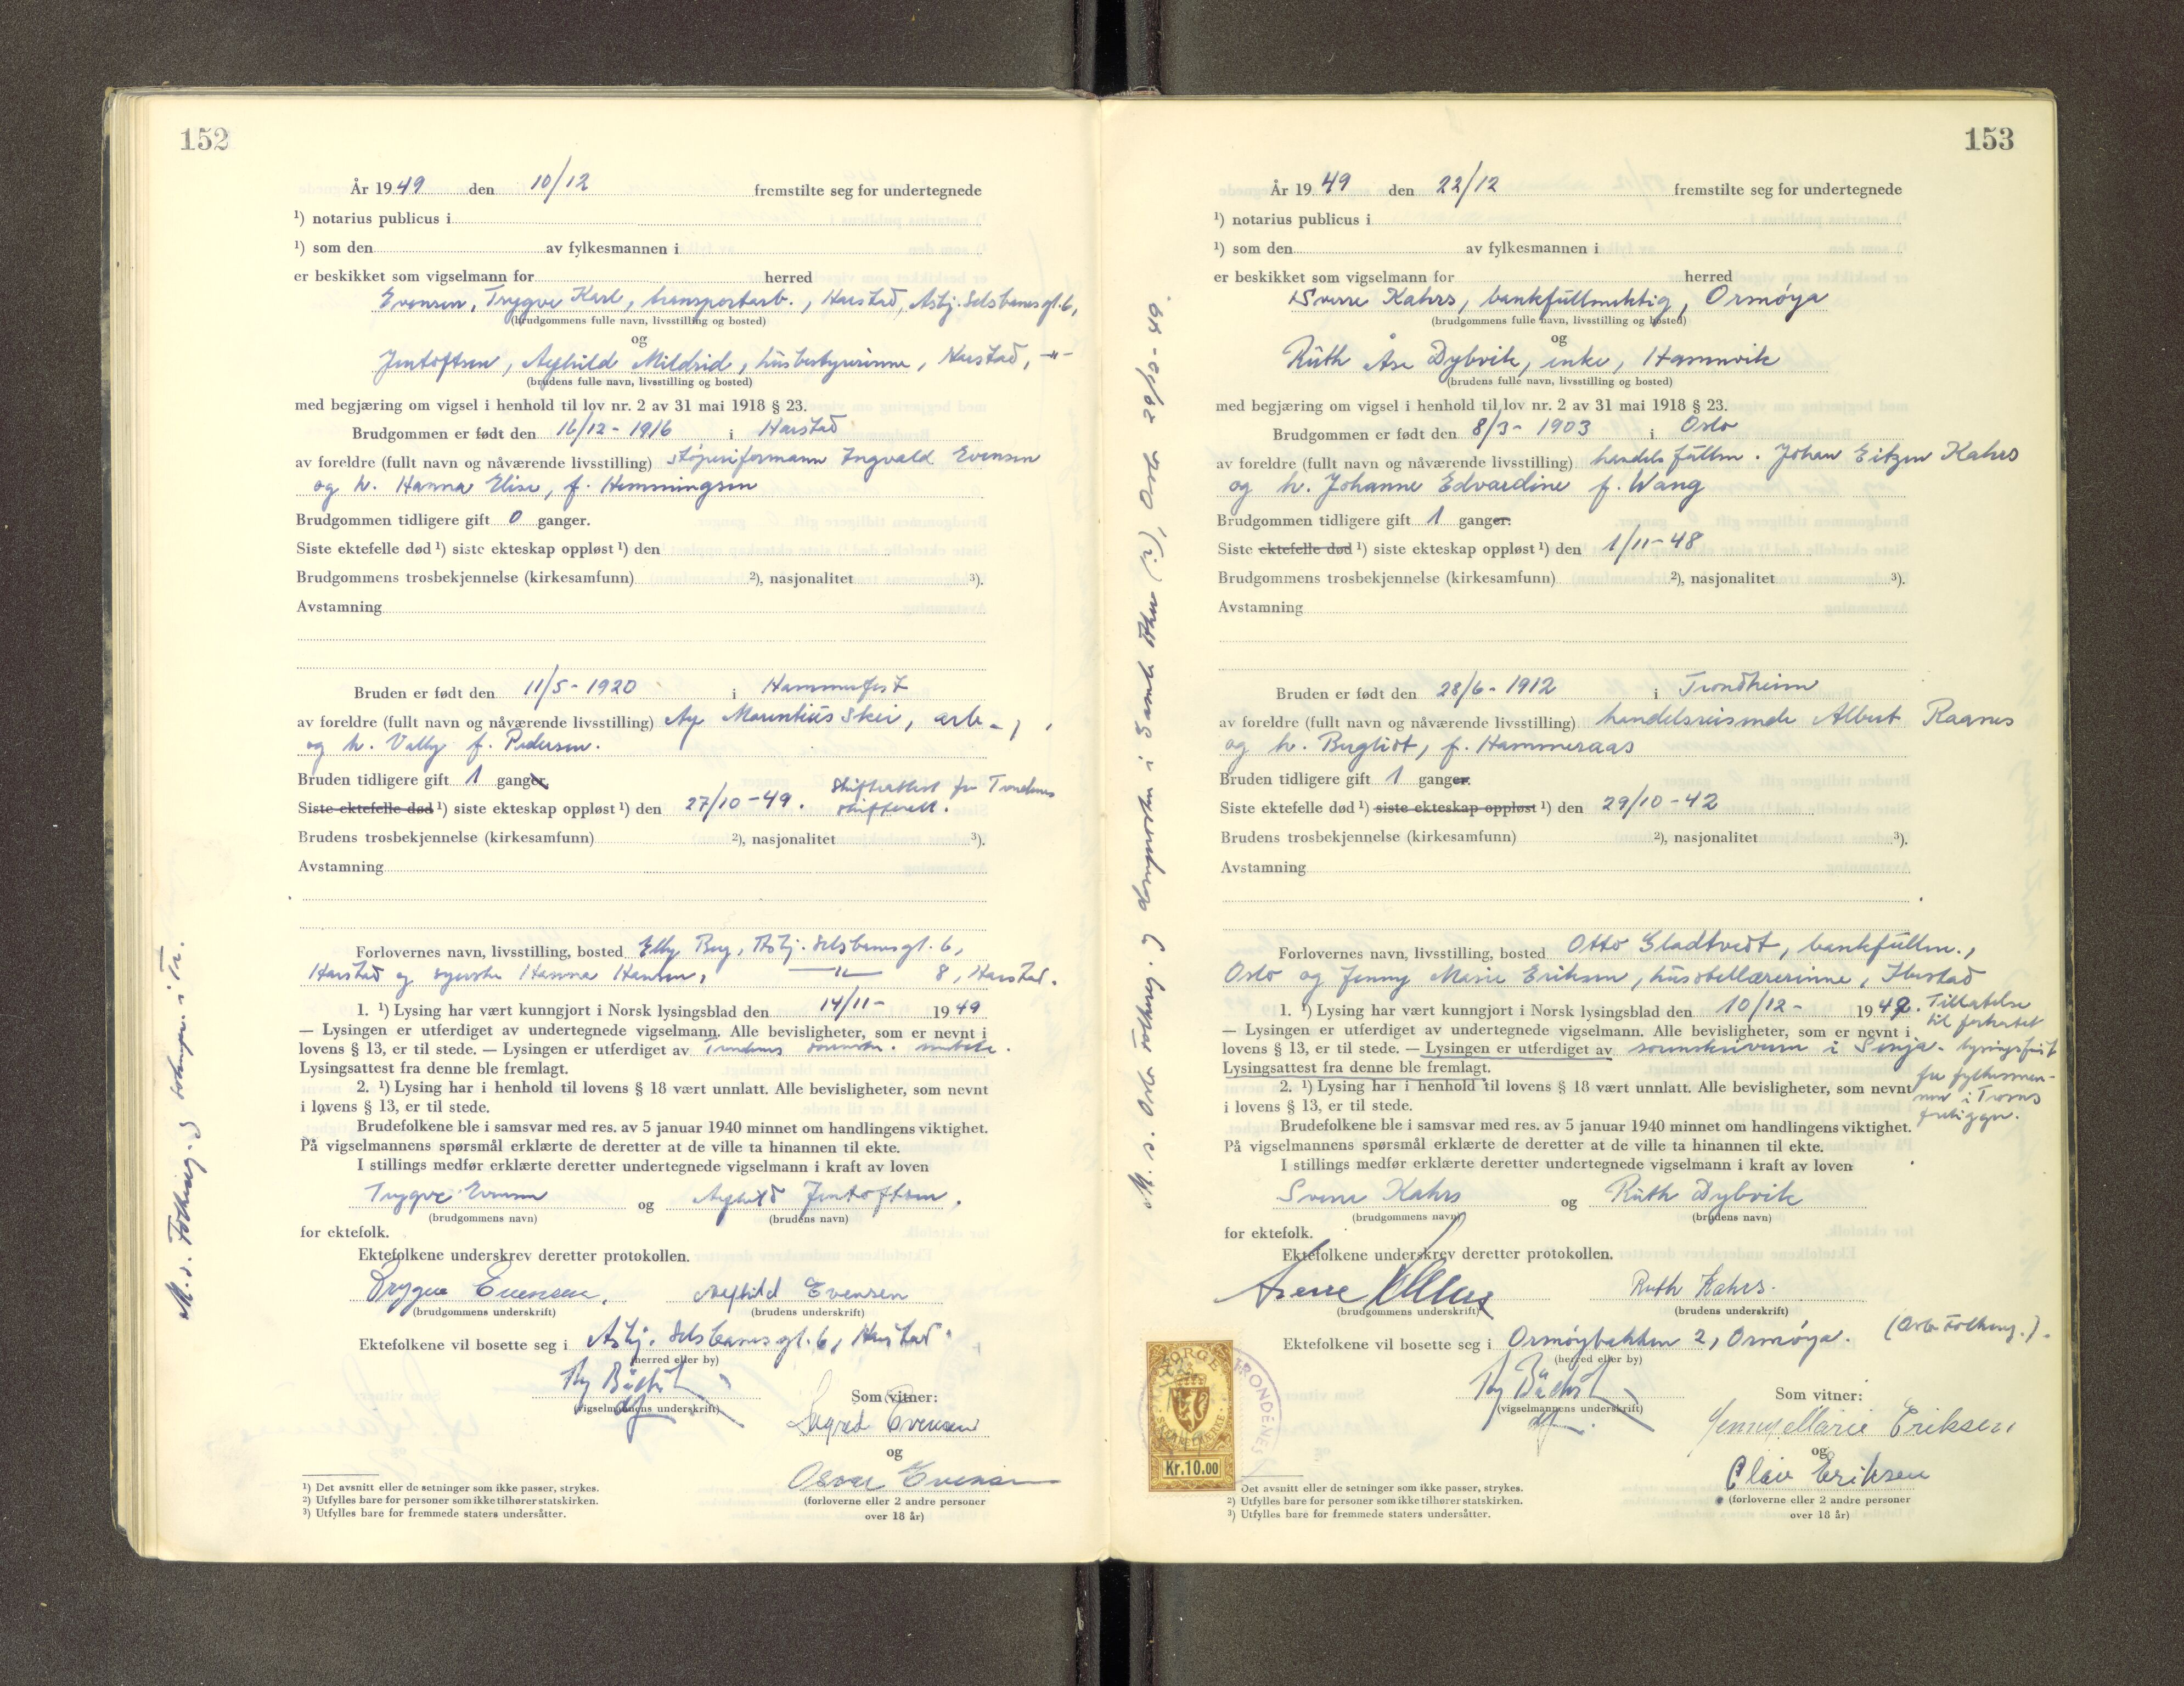 152
År 1949 den 10/12 fremstilte seg for undertegnede
¹) notarius publicus i
¹) som den av fylkesmannen i
er beskikket som vigselmann for herred
Evensen, Trygve Karl, transportarb., Harstad, Asbj. Selsbanesgt. 6,
(brudgommens fulle navn, livsstilling og bosted)
og
Jentoftsen, Aghild Mildrid, husbestyrerinne, Harstad, -"-
(brudens fulle navn, livsstilling og bosted)
med begjæring om vigsel i henhold til lov nr. 2 av 31 mai 1918 § 23.
Brudgommen er født den 16/12-1916 i Harstad
av foreldre (fullt navn og nåværende livsstilling) støperiformann Ingvald Evensen
og h. Hanna Elise, f. Hemmingsen
Brudgommen tidligere gift 0 ganger.
Siste ektefelle død ¹) siste ekteskap oppløst ¹) den
Brudgommens trosbekjennelse (kirkesamfunn) ²), nasjonalitet ³).
Avstamning
Bruden er født den 11/5-1920 i Hammerfest
av foreldre (fullt navn og nåværende livsstilling) Marentius Skei, arb.,
og h. Vally f. Pedersen.
Bruden tidligere gift 1 ganger.
Siste ektefelle død ¹) siste ekteskap oppløst ¹) den 27/10-49. Skifteattest fra Trondenes
skifterett.
Brudens trosbekjennelse (kirkesamfunn) ²), nasjonalitet ³).
Avstamning
Forlovernes navn, livsstilling, bosted Elly Berg, Asbj. Selsbanesgt. 6,
Harstad og Hanna Hansen, -"- 8, Harstad.
1. ¹) Lysing har vært kunngjort i Norsk lysingsblad den 14/11- 1949
— Lysingen er utferdiget av undertegnede vigselmann. Alle bevisligheter, som er nevnt i
lovens § 13, er til stede. — Lysingen er utferdiget av Trondenes sorenskr. embete.
Lysingsattest fra denne ble fremlagt.
2. ¹) Lysing har i henhold til lovens § 18 vært unnlatt. Alle bevisligheter, som nevnt
i lovens § 13, er til stede.
Brudefolkene ble i samsvar med res. av 5 januar 1940 minnet om handlingens viktighet.
På vigselmannens spørsmål erklærte de deretter at de ville ta hinannen til ekte.
I stillings medfør erklærte deretter undertegnede vigselmann i kraft av loven
Trygve Evensen og Aghild Jentoftsen.
(brudgommens navn) (brudens navn)
for ektefolk.
Ektefolkene underskrev deretter protokollen.
Trygve Evensen. Aghild Evensen
(brudgommens underskrift) (brudens underskrift)
Ektefolkene vil bosette seg i Asbj. Selsbanesgt. 6, Harstad.
(herred eller by)
(vigselmannens underskrift)
Som vitner:
Sigrid Evensen
og
Oscar Evensen
(forloverne eller 2 andre personer
over 18 år)
¹) Det avsnitt eller de setninger som ikke passer, strykes.
²) Utfylles bare for personer som ikke tilhører statskirken.
³) Utfylles bare for fremmede staters undersåtter.
M. s. Folkereg. og sokneprs. i Tr.
153
År 1949 den 22/12 fremstilte seg for undertegnede
¹) notarius publicus i
¹) som den av fylkesmannen i
er beskikket som vigselmann for herred
Sverre Kahrs, bankfullmektig, Ormøya
(brudgommens fulle navn, livsstilling og bosted)
og
Ruth Åse Dybvik, enke, Hamnvik
(brudens fulle navn, livsstilling og bosted)
med begjæring om vigsel i henhold til lov nr. 2 av 31 mai 1918 § 23.
Brudgommen er født den 8/3-1903 i Oslo
av foreldre (fullt navn og nåværende livsstilling) handelsfullm. Johan Eitzen Kahrs
og h. Johanne Edvardine f. Wang
Brudgommen tidligere gift 1 ganger.
Siste ektefelle død ¹) siste ekteskap oppløst ¹) den 1/11-48
Brudgommens trosbekjennelse (kirkesamfunn) ²), nasjonalitet ³).
Avstamning
Bruden er født den 28/6-1912 i Trondheim
av foreldre (fullt navn og nåværende livsstilling) handelsreisende Albert Raanes
og h. Bergliot, f. Hammeraas
Bruden tidligere gift 1 ganger.
Siste ektefelle død ¹) siste ekteskap oppløst ¹) den 29/10-42
Brudens trosbekjennelse (kirkesamfunn) ²), nasjonalitet ³).
Avstamning
Forlovernes navn, livsstilling, bosted Otto Gladtvedt, bankfullm.,
Oslo og Jenny Marie Eriksen, husstellærerinne, Ibestad
1. ¹) Lysing har vært kunngjort i Norsk lysingsblad den 10/12- 1949. Tillatelse
til forkortet
— Lysingen er utferdiget av undertegnede vigselmann. Alle bevisligheter, som er nevnt i
lovens § 13, er til stede. — Lysingen er utferdiget av sorenskriveren i Senja. lysingsfrist
Lysingsattest fra denne ble fremlagt.
fra fylkesmannen i Troms
foreligger.
2. ¹) Lysing har i henhold til lovens § 18 vært unnlatt. Alle bevisligheter, som nevnt
i lovens § 13, er til stede.
Brudefolkene ble i samsvar med res. av 5 januar 1940 minnet om handlingens viktighet.
På vigselmannens spørsmål erklærte de deretter at de ville ta hinannen til ekte.
I stillings medfør erklærte deretter undertegnede vigselmann i kraft av loven
Sverre Kahrs og Ruth Dybvik
(brudgommens navn) (brudens navn)
for ektefolk.
Ektefolkene underskrev deretter protokollen.
Sverre Kahrs Ruth Kahrs.
(brudgommens underskrift) (brudens underskrift)
Ektefolkene vil bosette seg i Ormøybakken 2, Ormøya. (Oslo Folkereg.).
(herred eller by)
(vigselmannens underskrift)
Som vitner:
Jenny Marie Eriksen
og
Olav Eriksen
(forloverne eller 2 andre personer
over 18 år)
NORGE
Kr.10.00
TRONDENES
Det avsnitt eller de setninger som ikke passer, strykes.
²) Utfylles bare for personer som ikke tilhører statskirken.
³) Utfylles bare for fremmede staters undersåtter.
M. s. Oslo Folkereg. og i Gamle Aker (?), Oslo 29/12-49.